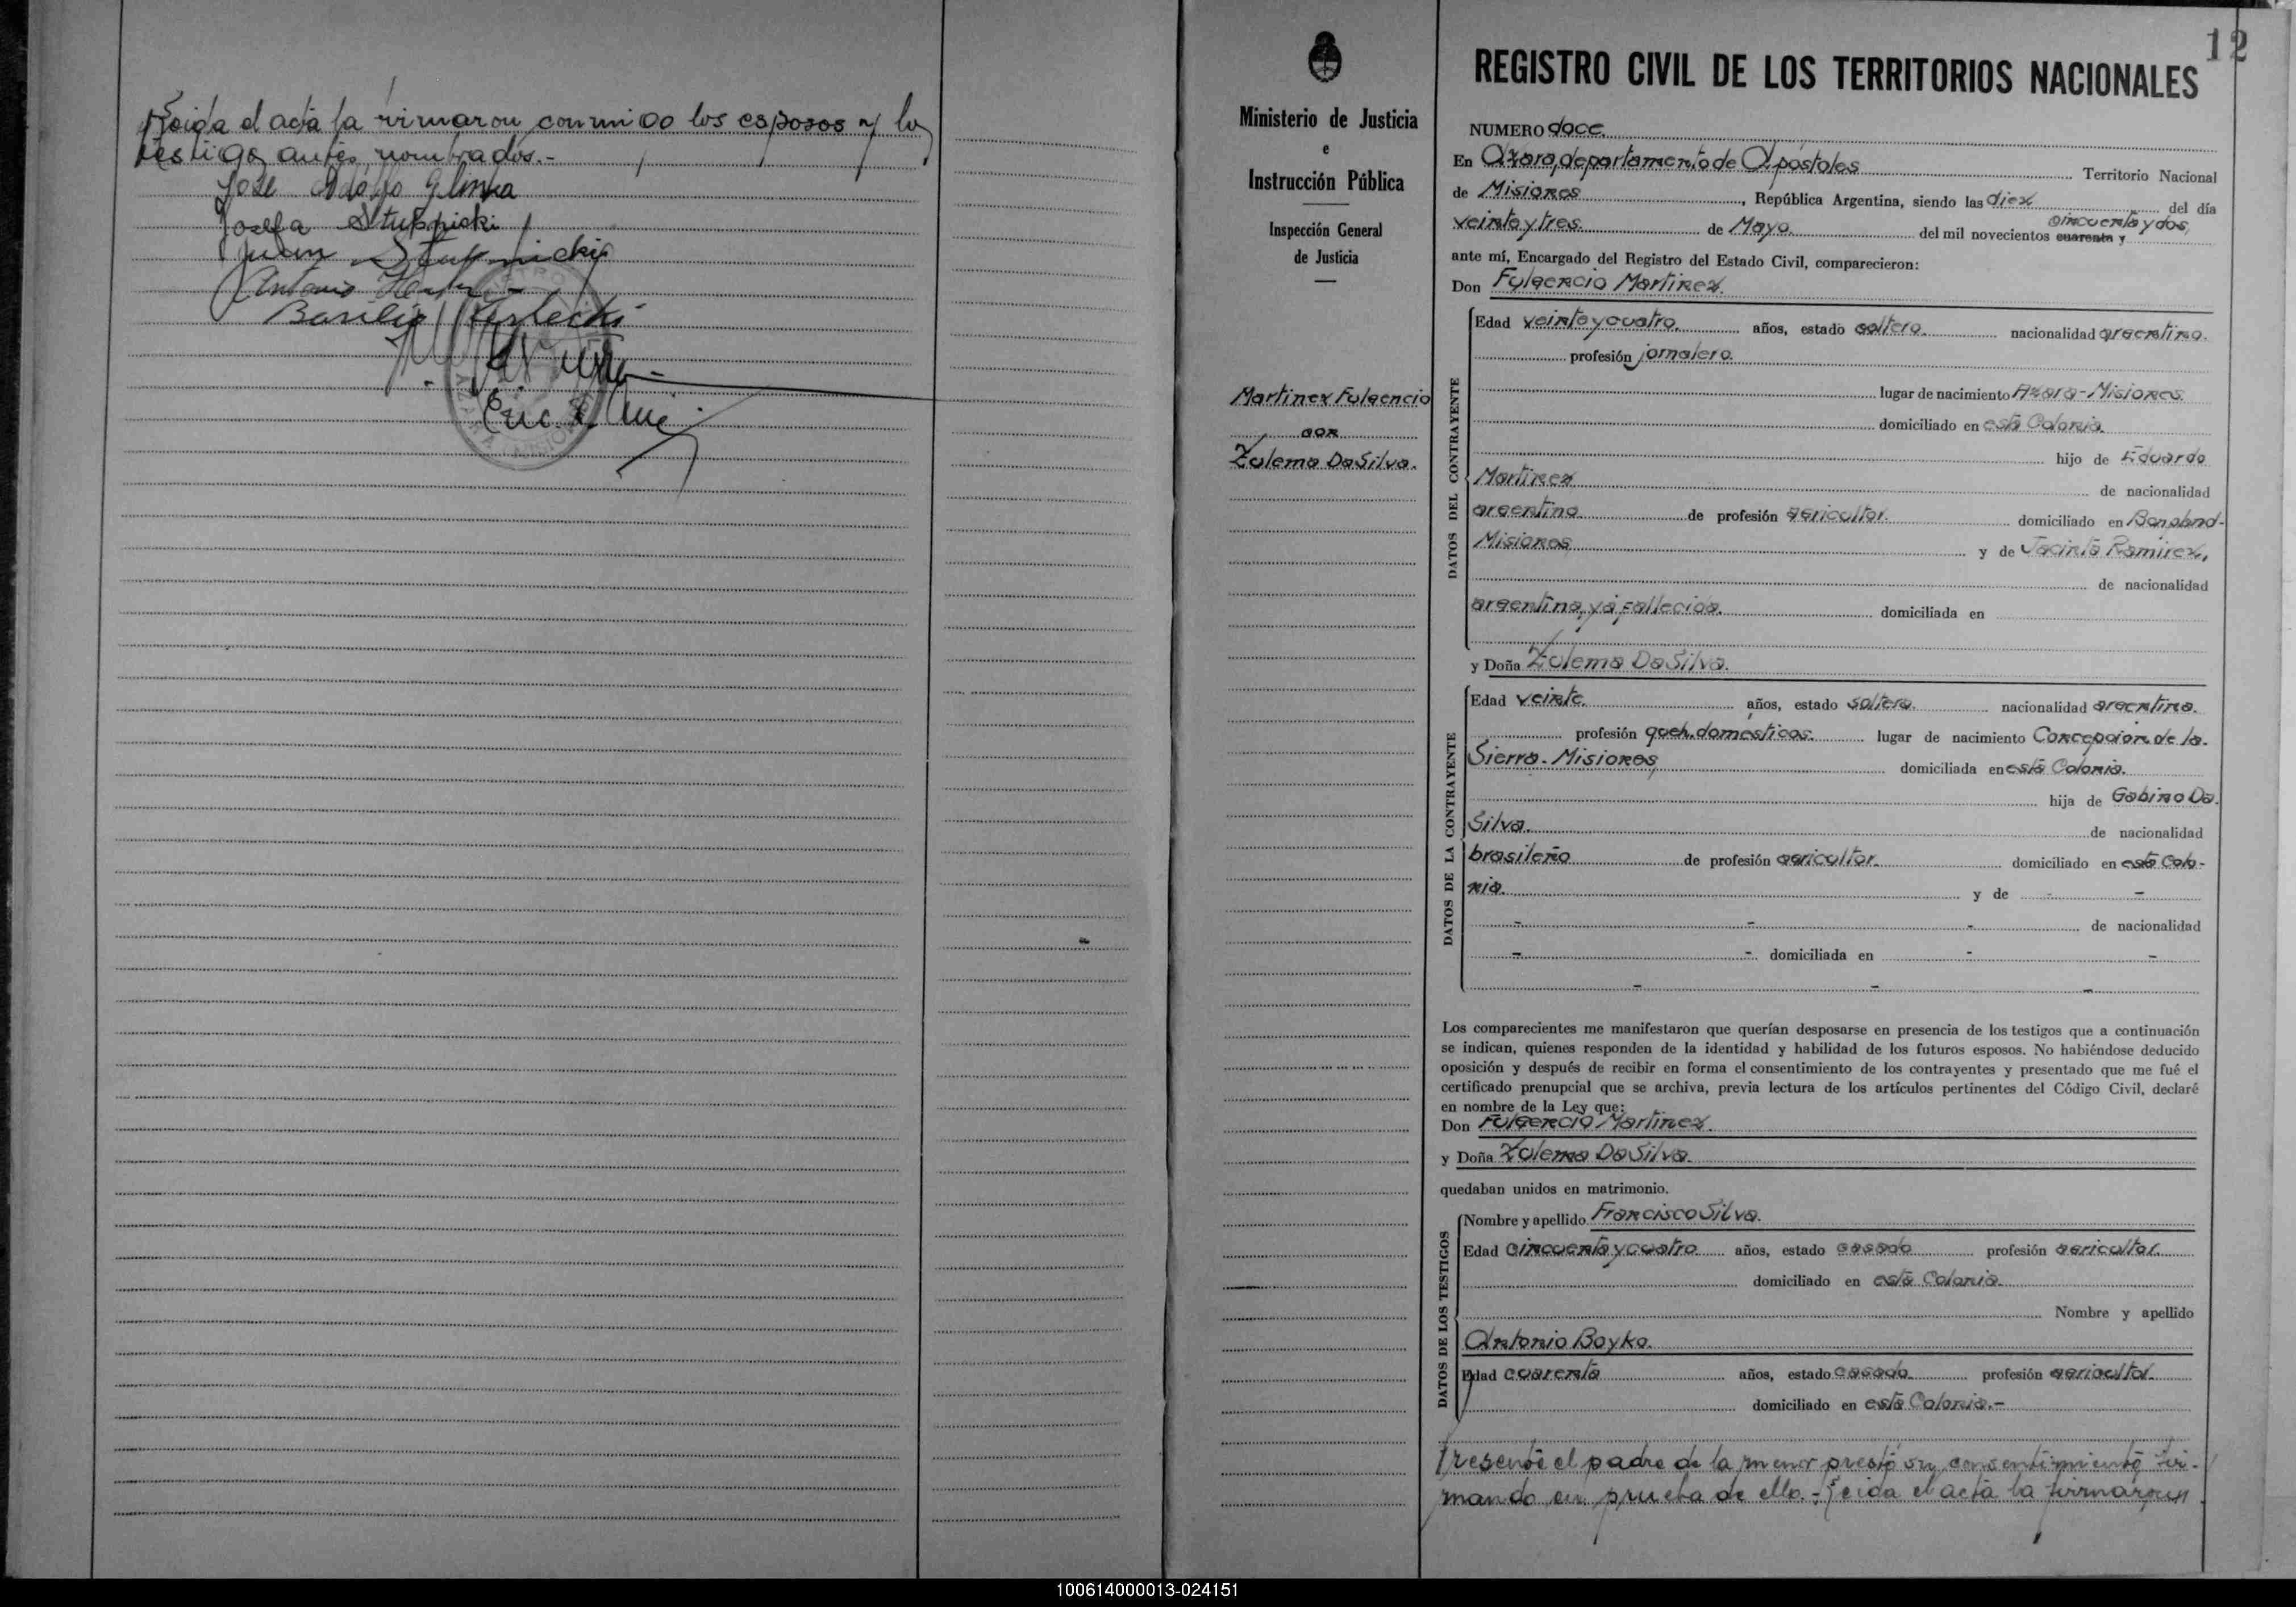 Leida el acta la firmaron conmigo los esposos y los
testigos antes nombrados.-
José Adolfo Glinka
Josefa Stupnicki
Juan Stupnicki
Antonio
Basilio
Enc.
12
REGISTRO CIVIL DE LOS TERRITORIOS NACIONALES
Ministerio de Justicia
e
Instrucción Pública
Inspección General
de Justicia
Martinez Fulgencio
con
Zulema Da Silva.
NUMERO doce.
En Azara, departamento de Apóstoles Territorio Nacional
de Misiones, República Argentina, siendo las diez del día
veinte y tres de Mayo. del mil novecientos cuarenta y cincuenta y dos,
ante mí, Encargado del Registro del Estado Civil, comparecieron:
Don Fulgencio Martinez.
DATOS DEL CONTRAYENTE
Edad veinte y cuatro. años, estado soltero. nacionalidad argentino.
profesión jornalero.
lugar de nacimiento Azara-Misiones.
domiciliado en está Colonia.
hijo de Eduardo
Martinez de nacionalidad
argentino. de profesión agricultor. domiciliado en Bonpland-
Misiones y de Jacinta Ramirez,
de nacionalidad
argentina, yá fallecida. domiciliada en
y Doña Zulema Da Silva.
DATOS DE LA CONTRAYENTE
Edad veinte. años, estado soltera. nacionalidad argentina.
profesión queh. domésticos. lugar de nacimiento Concepción de la.
Sierra-Misiones domiciliada en está Colonia.
hija de Gabino Da.
Silva. de nacionalidad
brasileño de profesión agricultor. domiciliado en está Colo-
nia. y de - -
- - - de nacionalidad
- - domiciliada en - -
- - -
Los comparecientes me manifestaron que querían desposarse en presencia de los testigos que a continuación
se indican, quienes responden de la identidad y habilidad de los futuros esposos. No habiéndose deducido
oposición y después de recibir en forma el consentimiento de los contrayentes y presentado que me fué el
certificado prenupcial que se archiva, previa lectura de los artículos pertinentes del Código Civil, declaré
en nombre de la Ley que:
Don Fulgencio Martinez.
y Doña Zulema Da Silva.
quedaban unidos en matrimonio.
DATOS DE LOS TESTIGOS
Nombre y apellido Francisco Silva.
Edad cincuenta y cuatro años, estado casado profesión agricultor.
domiciliado en está Colonia.
Nombre y apellido
Antonio Boyko.
Edad cuarenta años, estado casado. profesión agricultor.
domiciliado en está Colonia.-
Presente el padre de la menor prestó su consentimiento fir-
mando en prueba de ello.- Leida el acta la firmaron
100614000013-024151